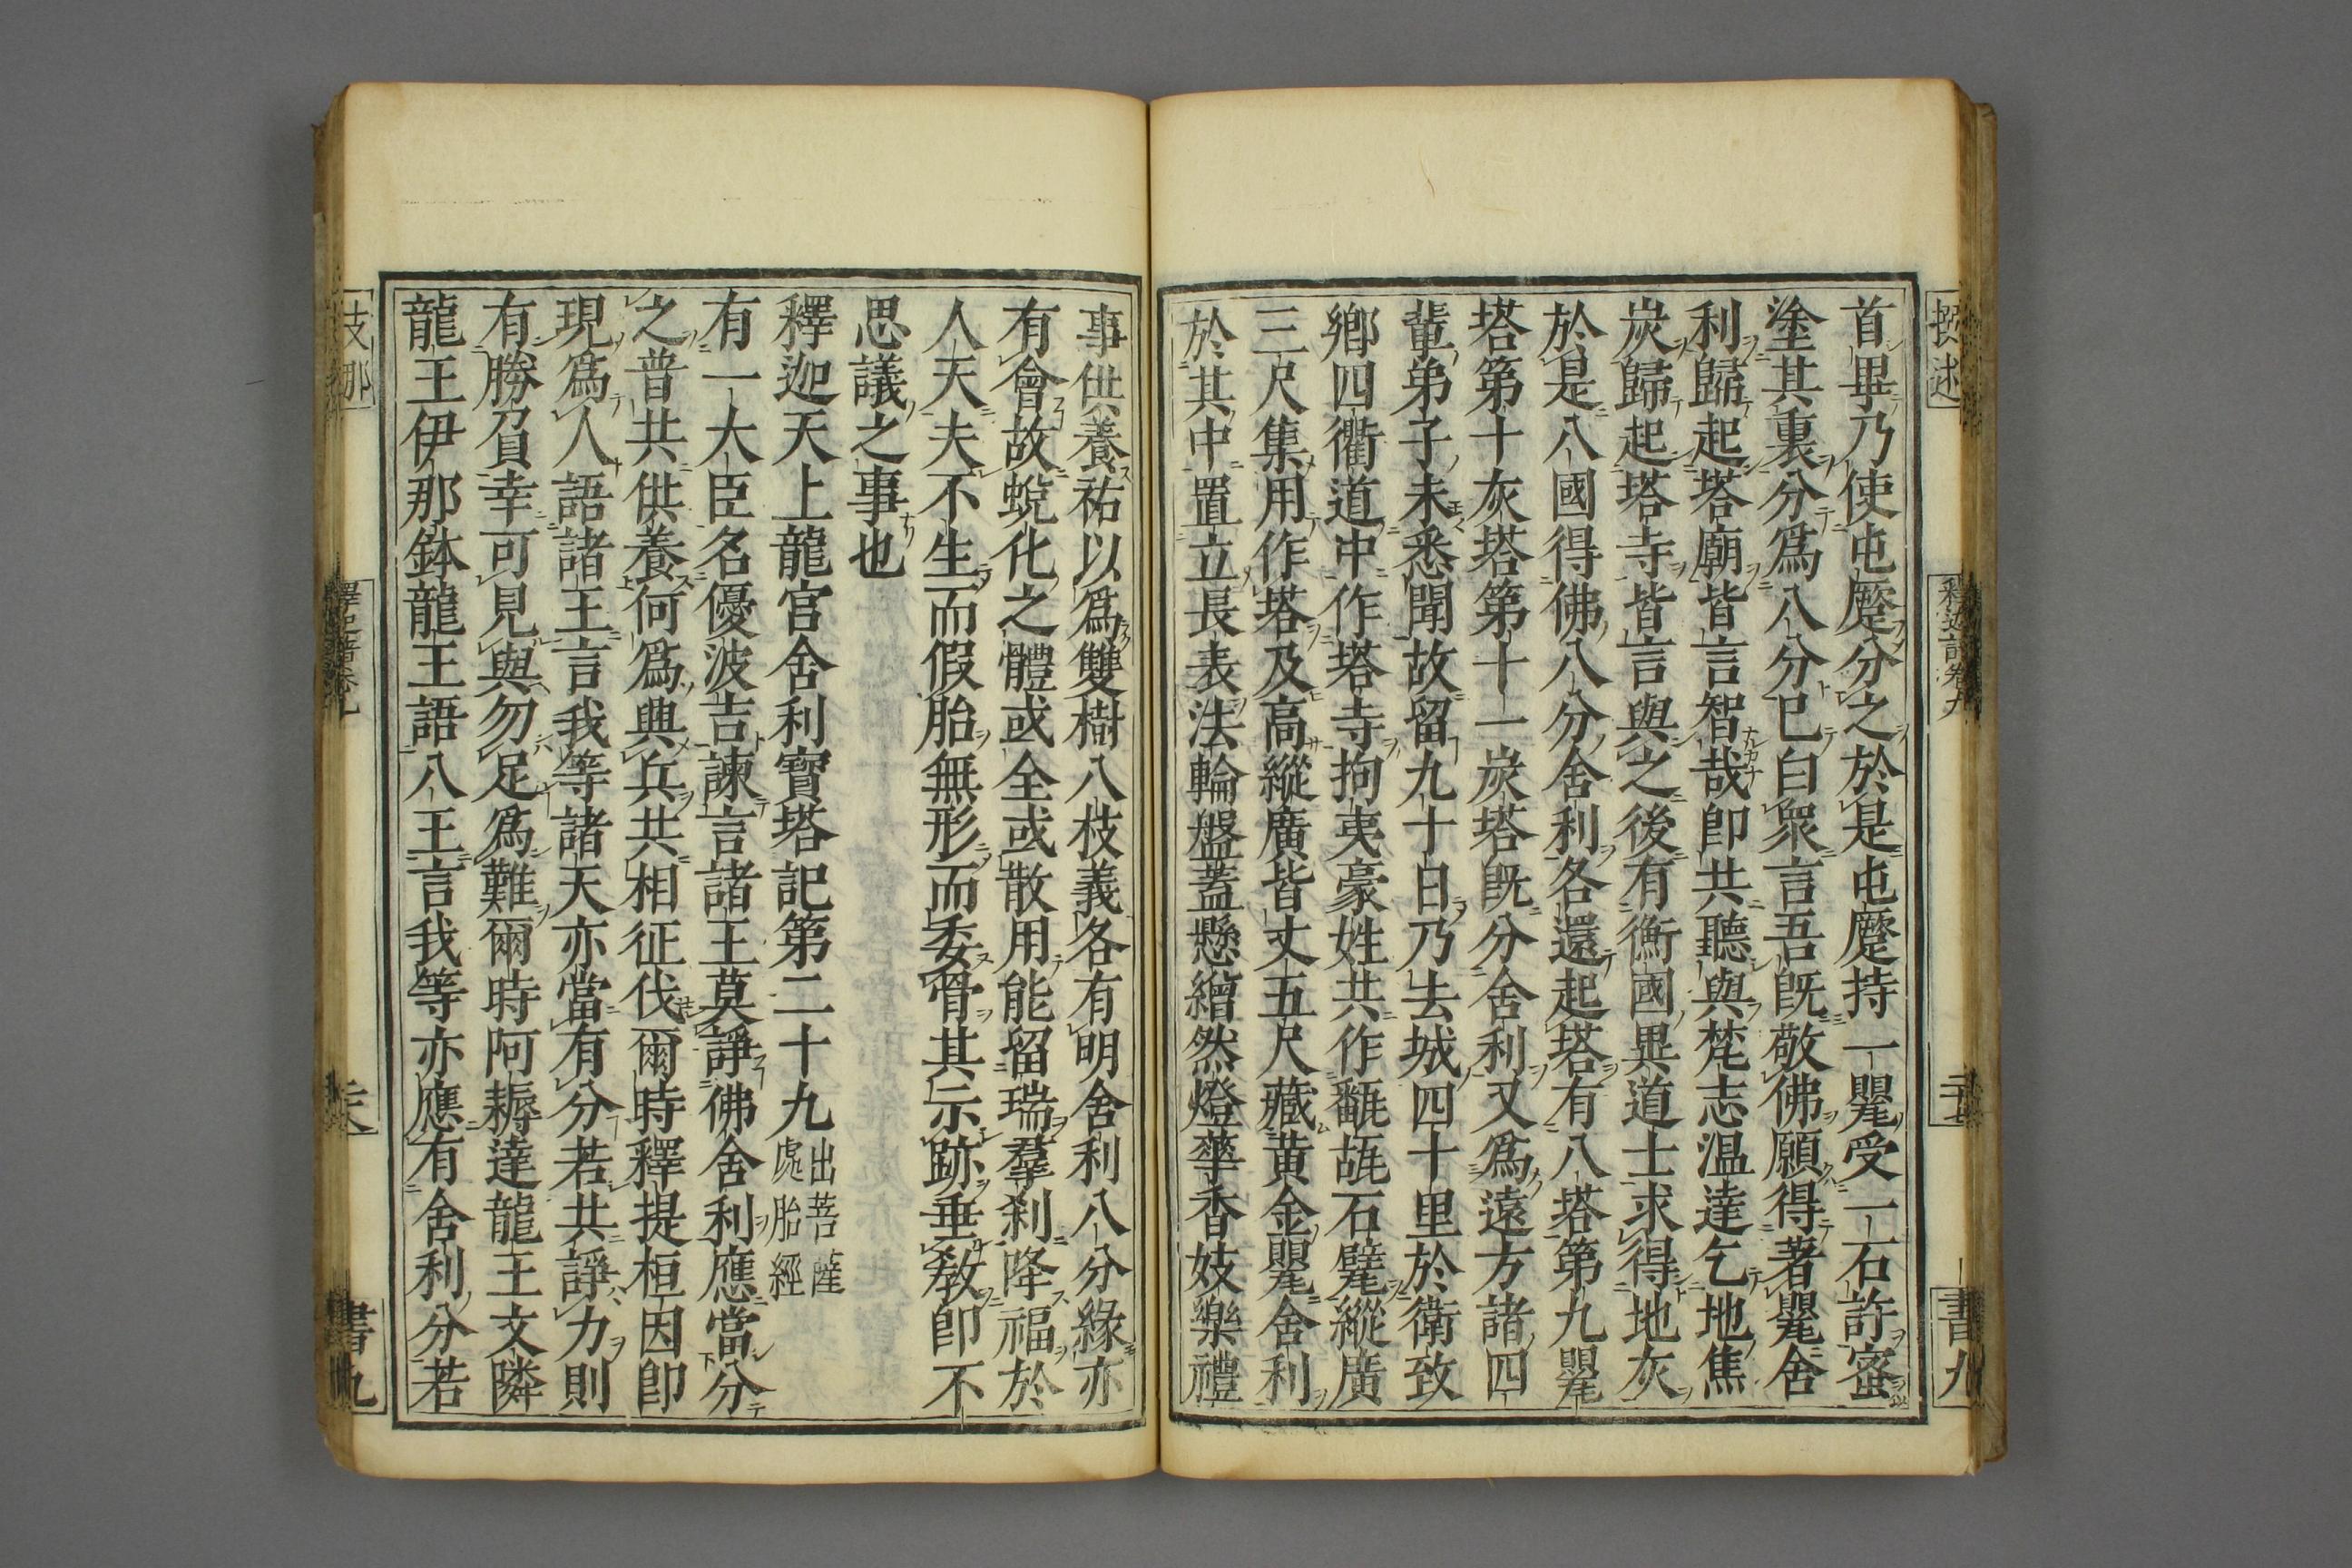 首畢乃使屯䗍分之於是屯䗍持一甖受一石許蜜
塗其裏分爲八分已白衆言吾既敬佛願得著甖舍
利歸起塔廟皆言智哉即共聽與梵志温達乞地焦
炭歸起塔寺皆言與之後有衡國異道士求得地灰
於是八國得佛八分舍利各還起塔有八塔第九甖
塔第十灰塔第十一炭塔既分舍利又爲遠方諸四
輩弟子未悉聞故留九十日乃去城四十里於衛致
鄉四衢道中作塔寺拘夷豪姓共作瓴瓳石㽃縱廣
三尺集用作塔及高縱廣皆丈五尺藏黃金甖舍利
於其中置立長表法輪盤蓋懸繒然燈華香妓樂禮
事供養祐以爲雙樹八枝義各有明舍利八分緣亦
有會故蛻化之體或全或散用能留瑞羣刹降福於
人天夫不生而假胎無形而委骨其示跡垂教即不
思議之事也
釋迦天上龍宮舍利寶塔記第二十九出菩薩處胎經
有一大臣名優波吉諫言諸王莫諍佛舍利應當分
之普共供養何爲興兵共相征伐爾時釋提桓因即
現爲人語諸王言我等諸天亦當有分若共諍力則
有勝負幸可見與勿足爲難爾時阿耨達龍王文隣
龍王伊那鉢龍王語八王言我等亦應有舍利分若
書九